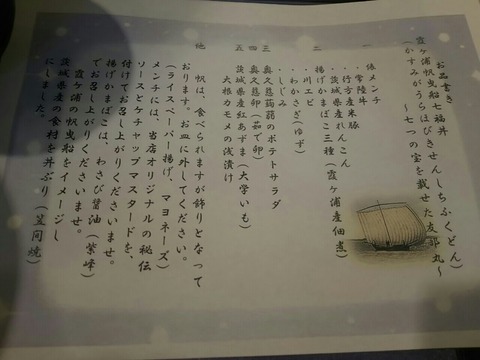 お品書き
霞ヶ浦帆曳船七福丼
(かすみがうらほびきせんしちふくどん)
～七つの宝を載せた友部丸～
一 俵メンチ
・常陸牛
・行方産米豚
・茨城県産れんこん
二 揚げかまぼこ三種(霞ヶ浦産佃煮)
・川エビ
・わかさぎ(ゆず)
・しじみ
三 奥久慈蒟蒻のポテトサラダ
四 奥久慈卵(茹で卵)
五 茨城県産紅あずま(大学いも)
大根カモメの浅漬け
他 帆は、食べられますが飾りとなって
おります。お皿に外してください。
(ライスペーパー揚げ、マヨネーズ)
メンチには、当店オリジナルの秘伝
ソースとケチャップマスタードを、
付けてお召し上がりくださいませ。
揚げかまぼこは、わさび醤油(紫峰)
でお召し上がりくださいませ。
霞ヶ浦の帆曳船をイメージし
茨城県産の食材を丼ぶり(笠間焼)
にしました。